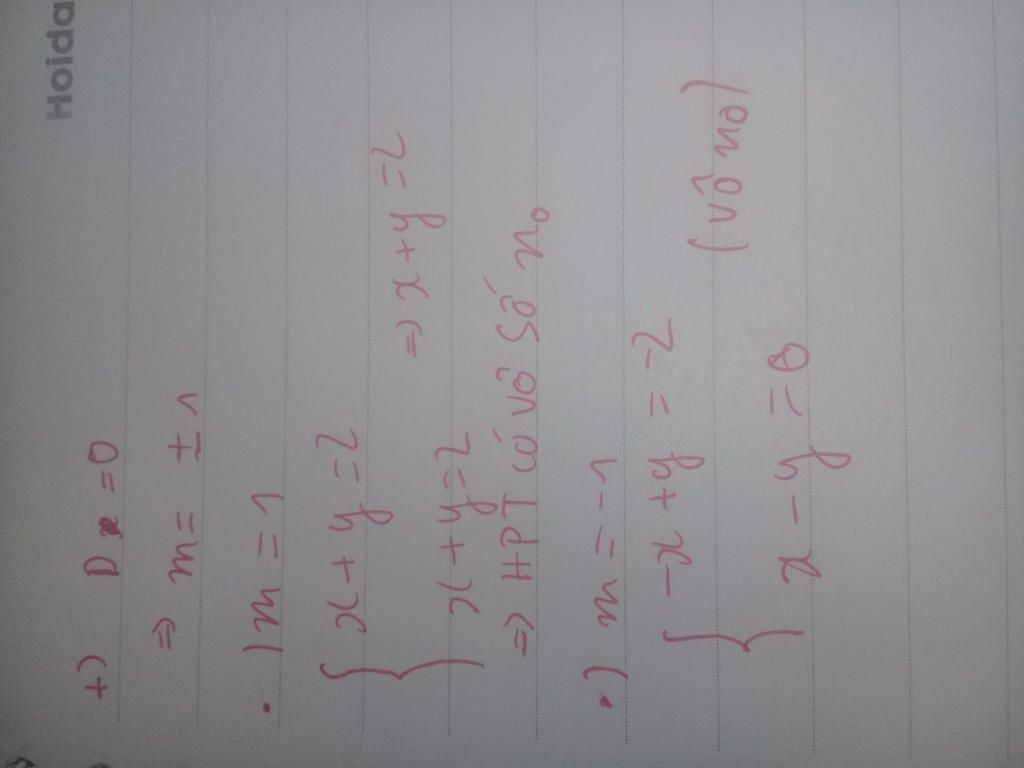 Hoida
+) D = 0
⇒ m = ± 1
•) m = 1
{ x + y = 2
x + y = 2 ⇒ x + y = 2
⇒ HPT có vô số n₀
•) m = -1
{ -x + y = -2
x - y = 0 (vô no)